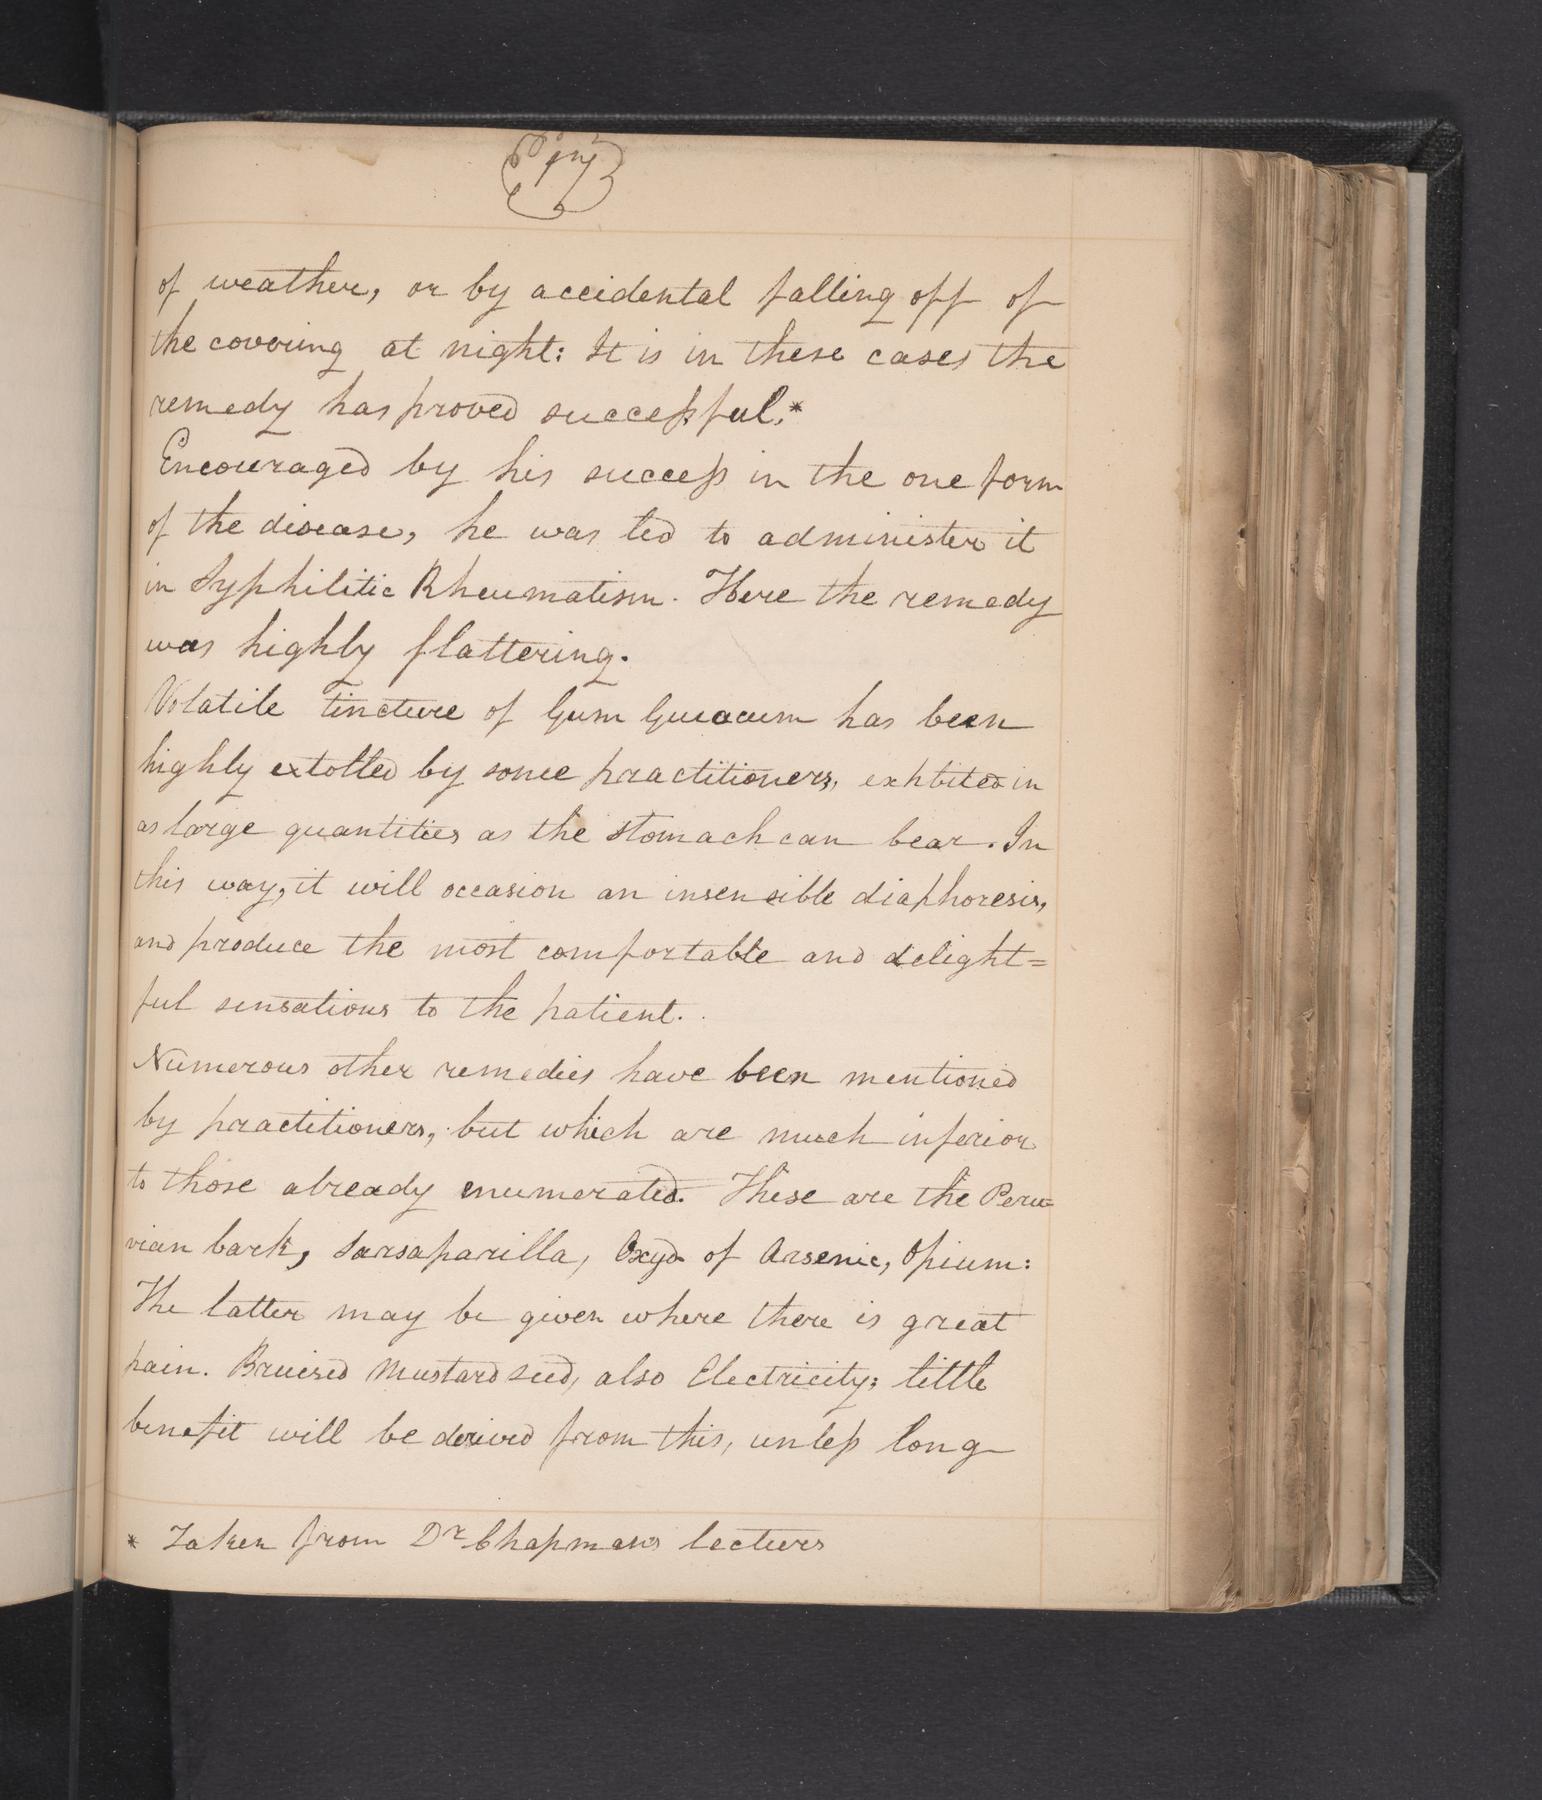 of weather, or by accidental falling off of
the covering at night: It is in these cases the
remedy has proved successful.*
Encouraged by his success in the one form
of the disease, he was led to administer it
in Syphilitic Rheumatism. Here the remedy
was highly flattering.
Volatile tincture of Gum Guiacum has been
highly extolled by some practitioners, exhbited in
as large quantities as the stomach can bear. In
this way, it will occasion an insensible diaphoresis,
and produce the most comfortable and delight=
ful sensations to the patient.
Numerous other remedies have been mentioned
by practitioners, but which are much inferior
to those already enumerated. These are the Peru=
vian bark, Sarsaparilla, Oxyd of Arsenic, Opium:
The latter may be given where there is great
pain. Bruised Mustard seed, also Electricity; little
benefit will be derived from this, unless long
* Taken from Dr Chapmans lectures